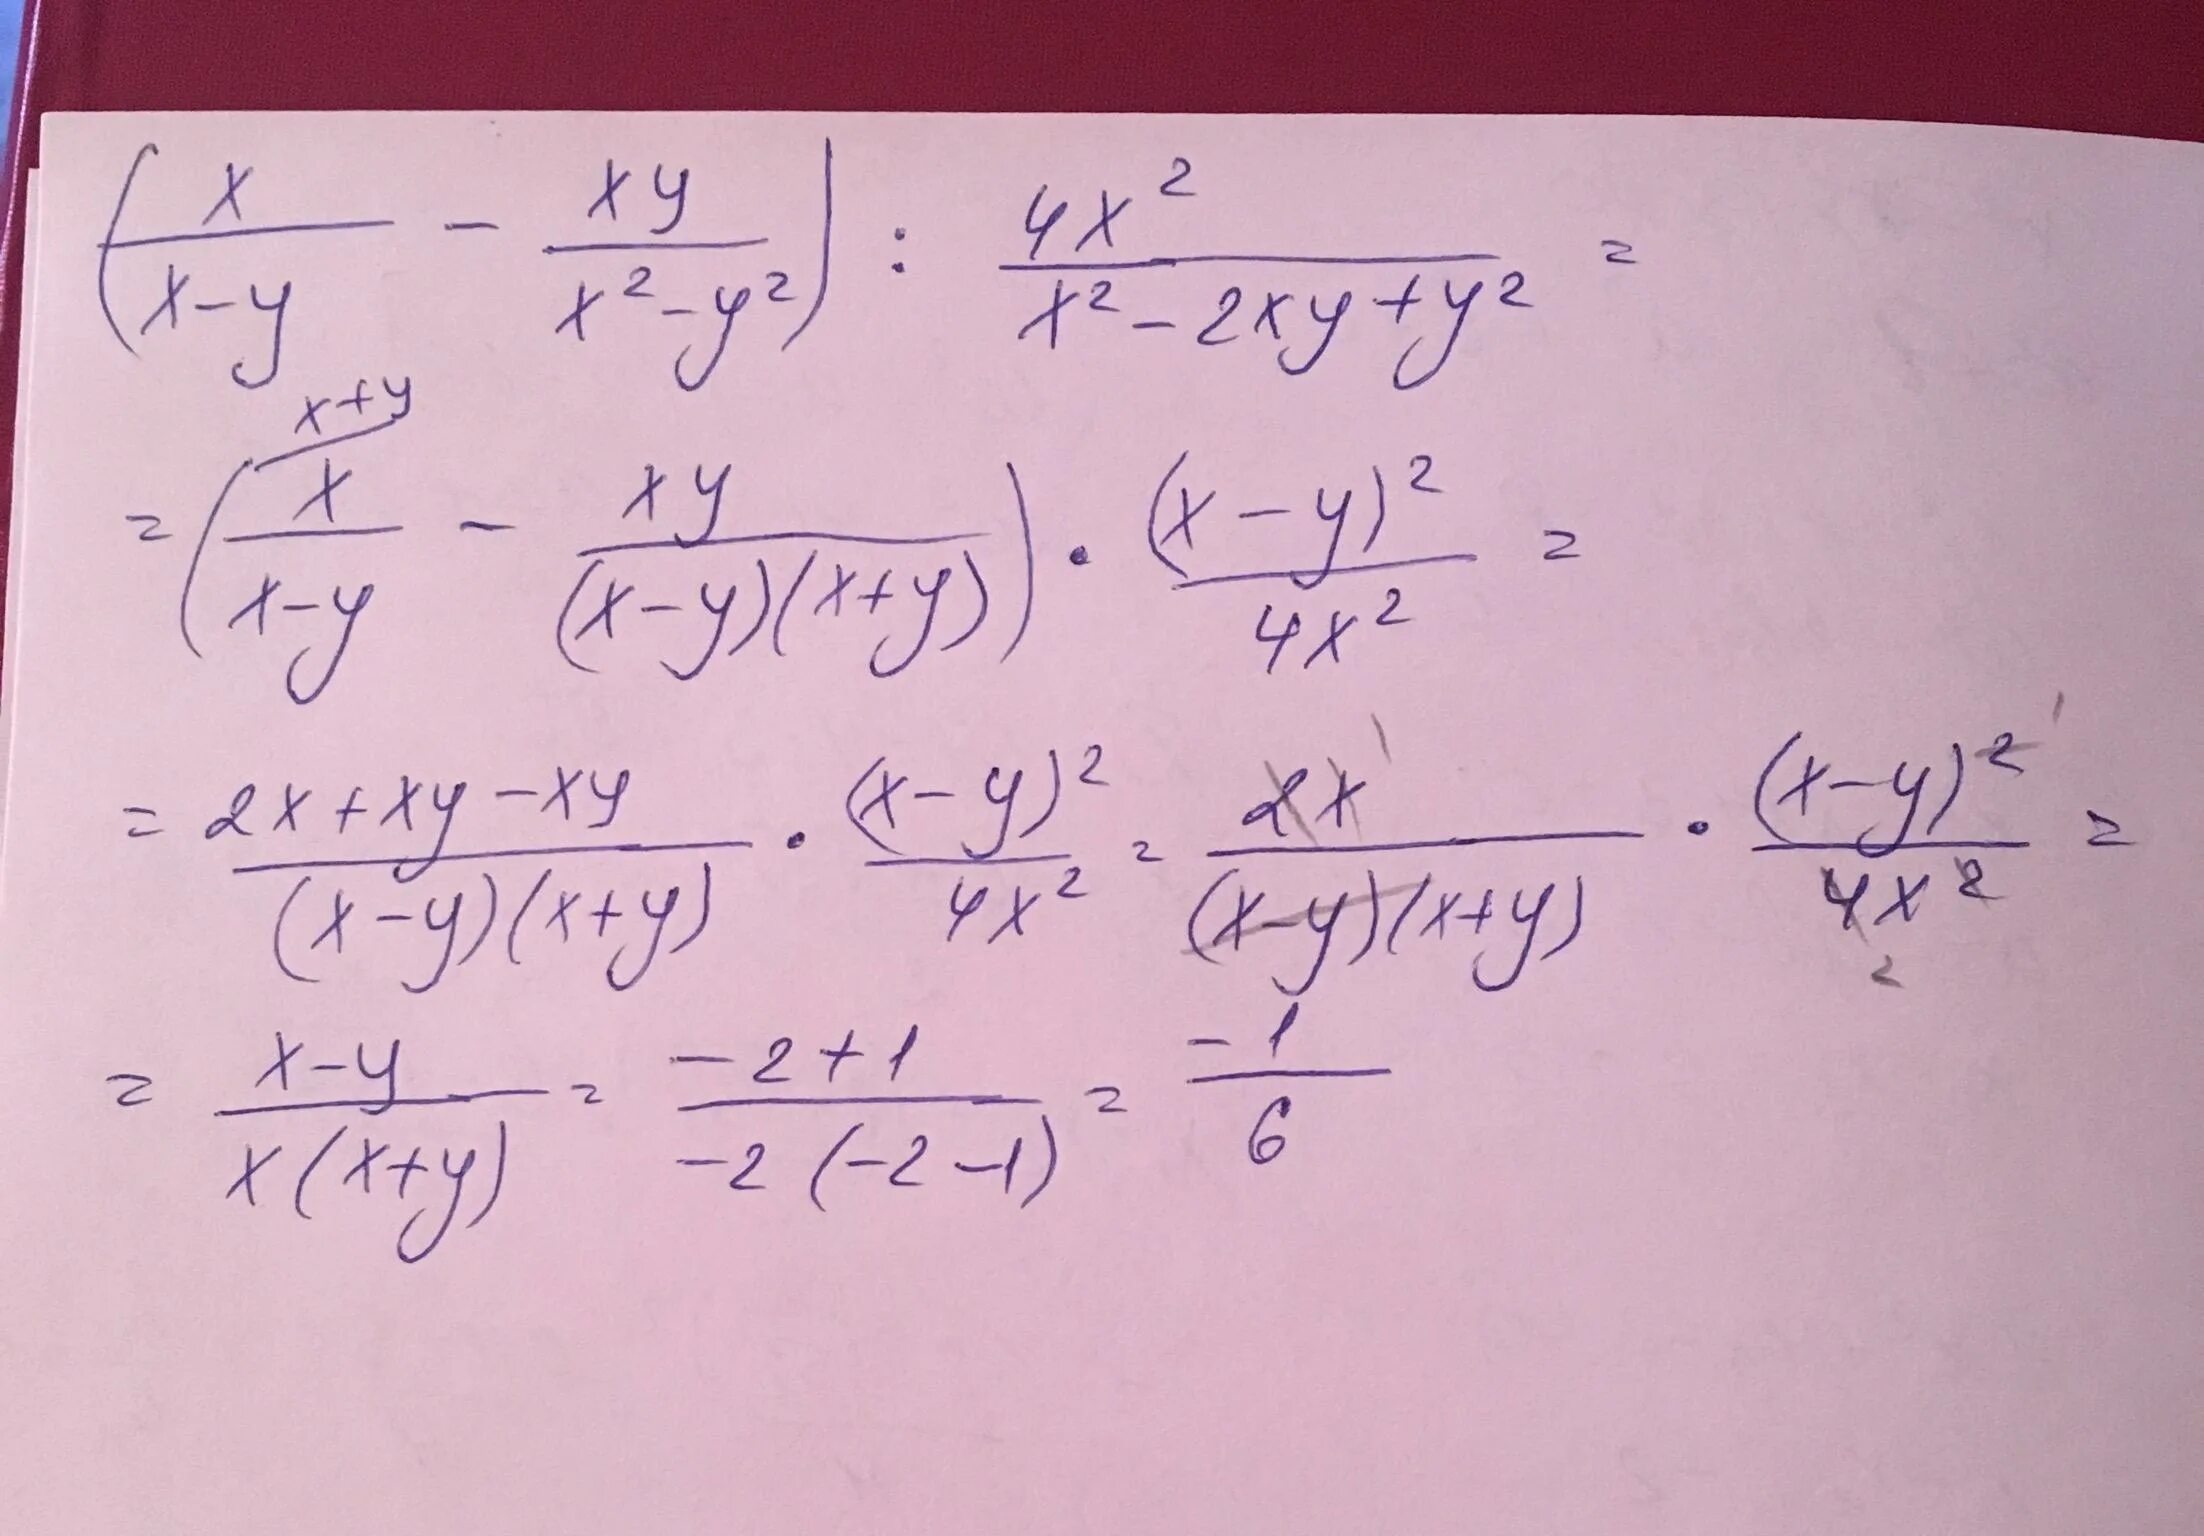 (x/(x-y) - xy/(x²-y²)) : 4x²/(x²-2xy+y²) =
x+y
= (x/(x-y) - xy/((x-y)(x+y))) · (x-y)²/4x² =
= (2x+xy-xy)/((x-y)(x+y)) · (x-y)²/4x² = 2x/((x-y)(x+y)) · (x-y)²/4x² =
= (x-y)/(x(x+y)) = (-2+1)/(-2(-2-1)) = -1/6